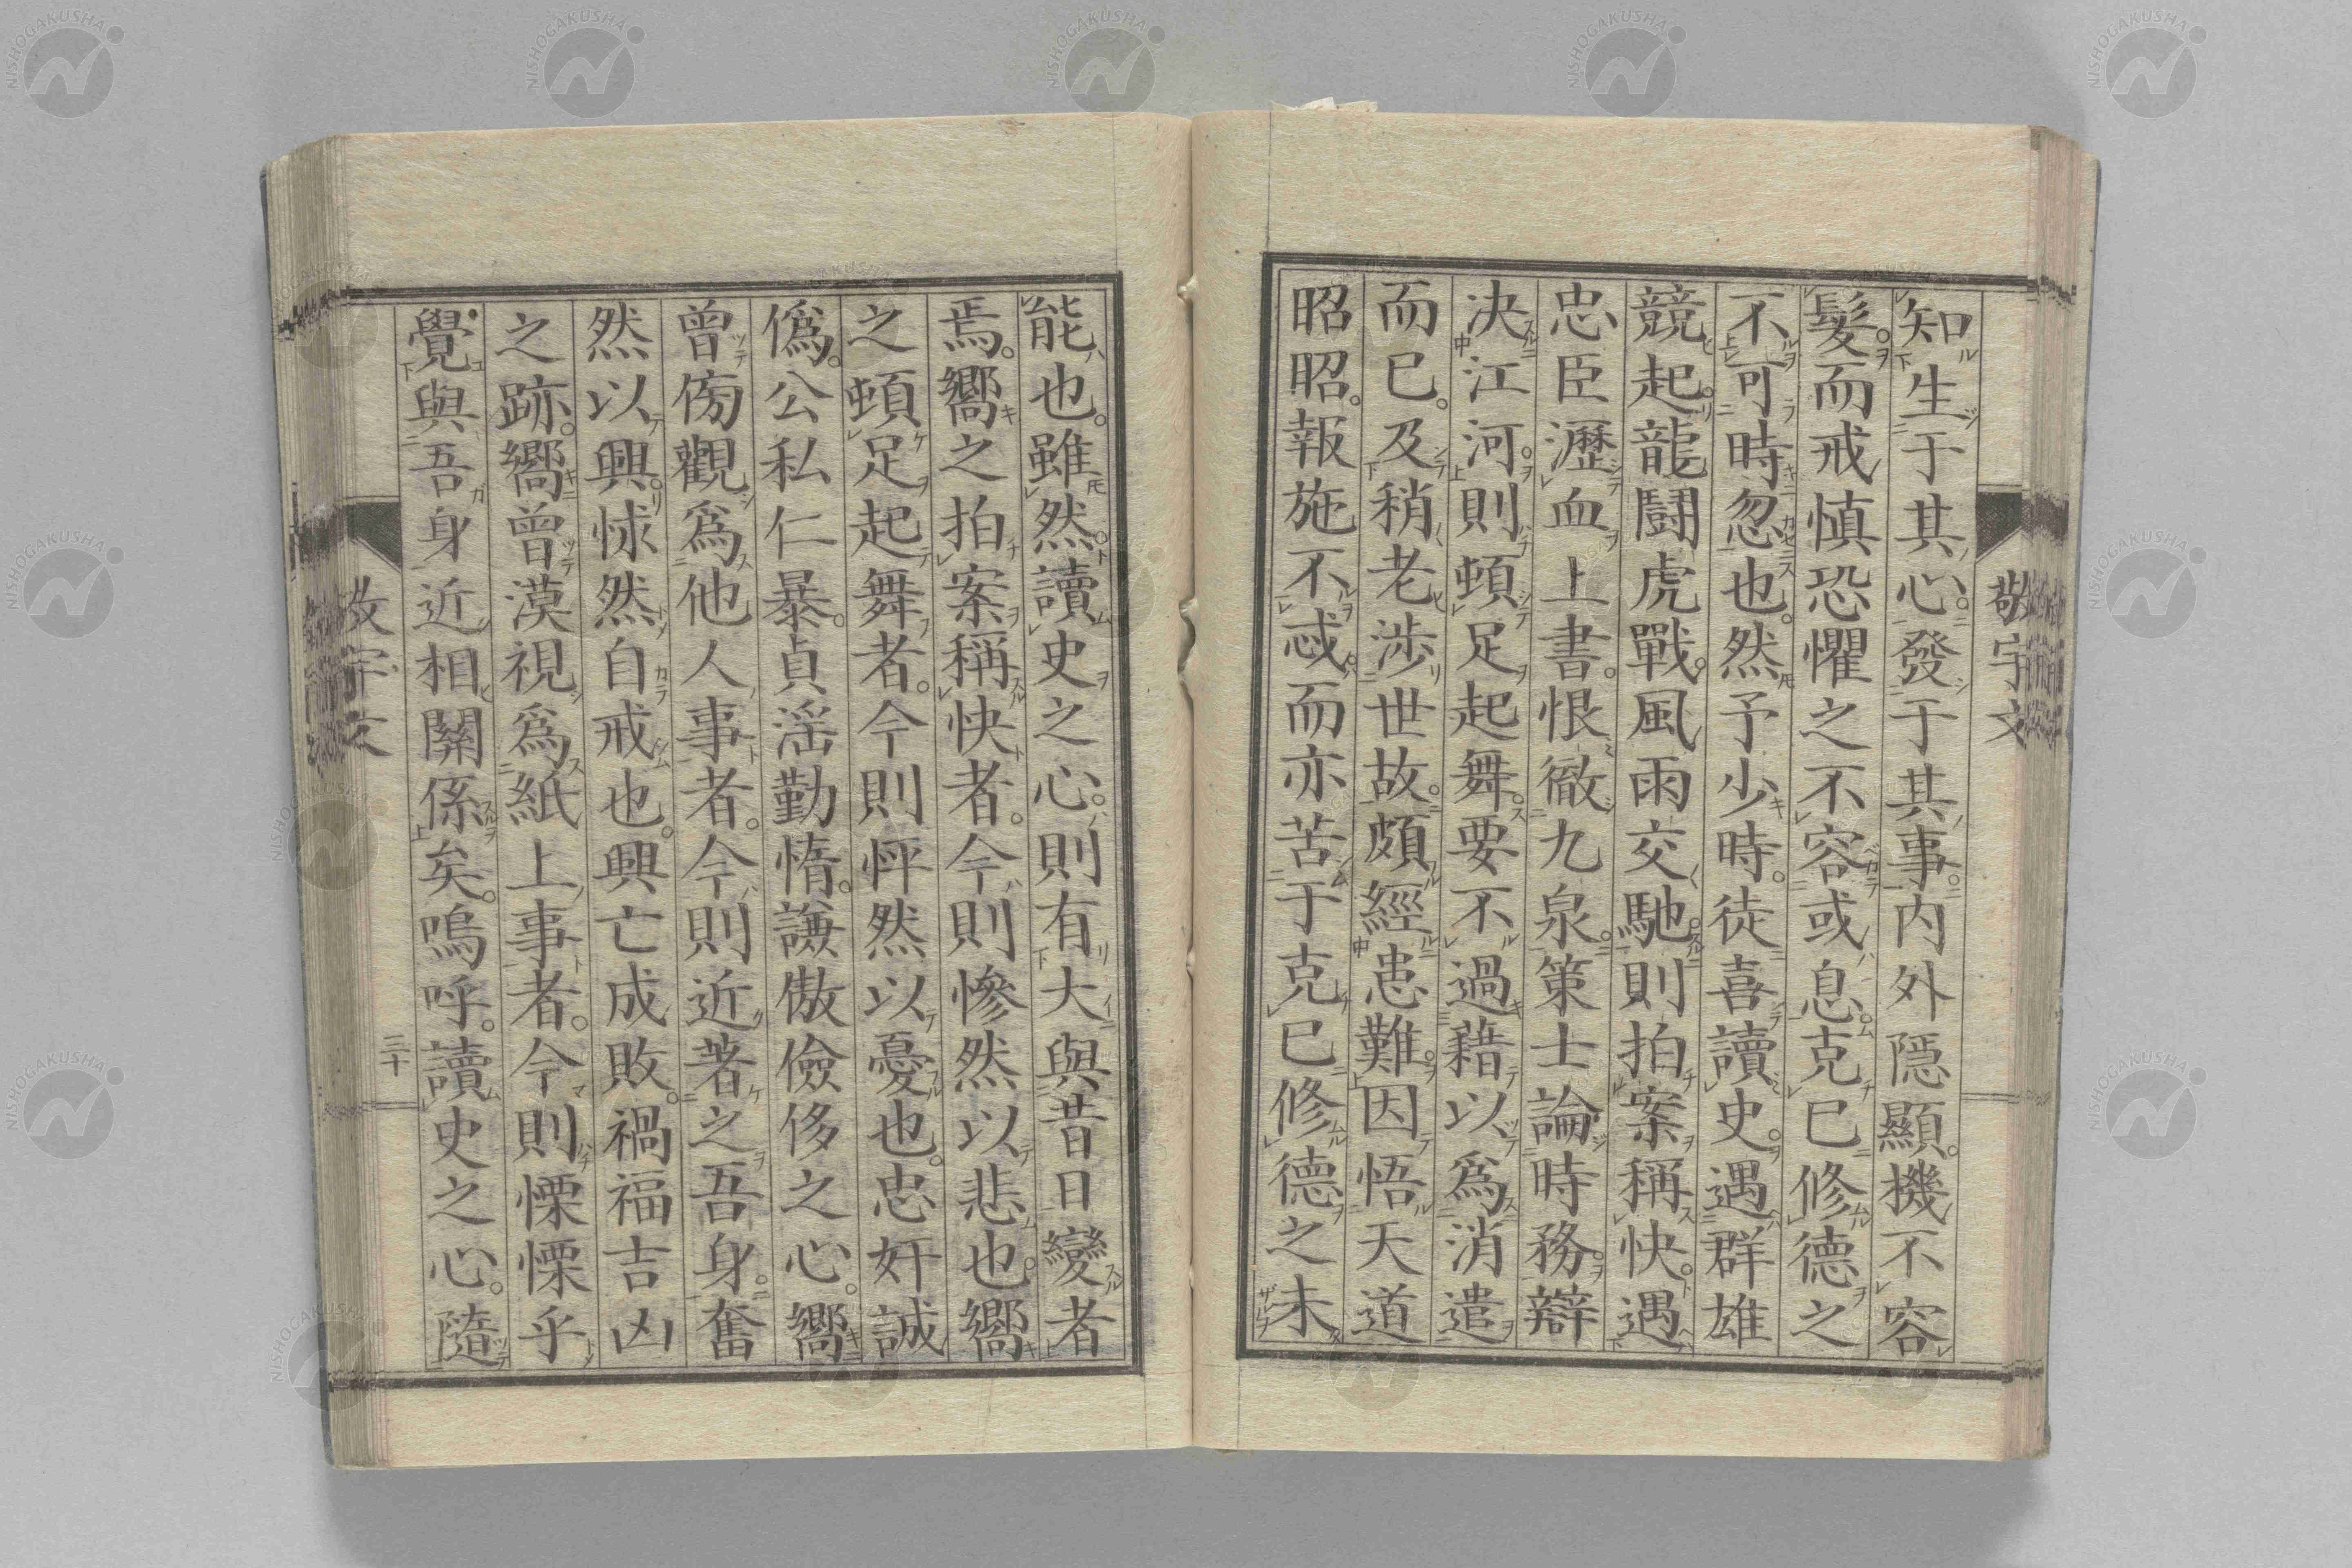 敬宇文
知生于其心發于其事内外隱顯機不容
髮而戒慎恐懼之不容或息克己修德之
不可時忽也然予少時徒喜讀史遇群雄
競起龍鬪虎戰風雨交馳則拍案稱快遇
忠臣瀝血上書恨徹九泉策士論時務辯
決江河則頓足起舞要不過藉以爲消遣
而已及稍老涉世故頗經患難因悟天道
昭昭報施不忒而亦苦于克己修德之未
能也雖然讀史之心則有大與昔日變者
焉嚮之拍案稱快者今則慘然以悲也嚮
之頓足起舞者今則怦然以憂也忠奸誠
僞公私仁暴貞淫勤惰謙傲儉侈之心嚮
曾傍觀爲他人事者今則近著之吾身奮
然以興悚然自戒也興亡成敗禍福吉凶
之跡嚮曾漠視爲紙上事者今則慄慄乎
覺與吾身近相關係矣嗚呼讀史之心隨
敬宇文
三十